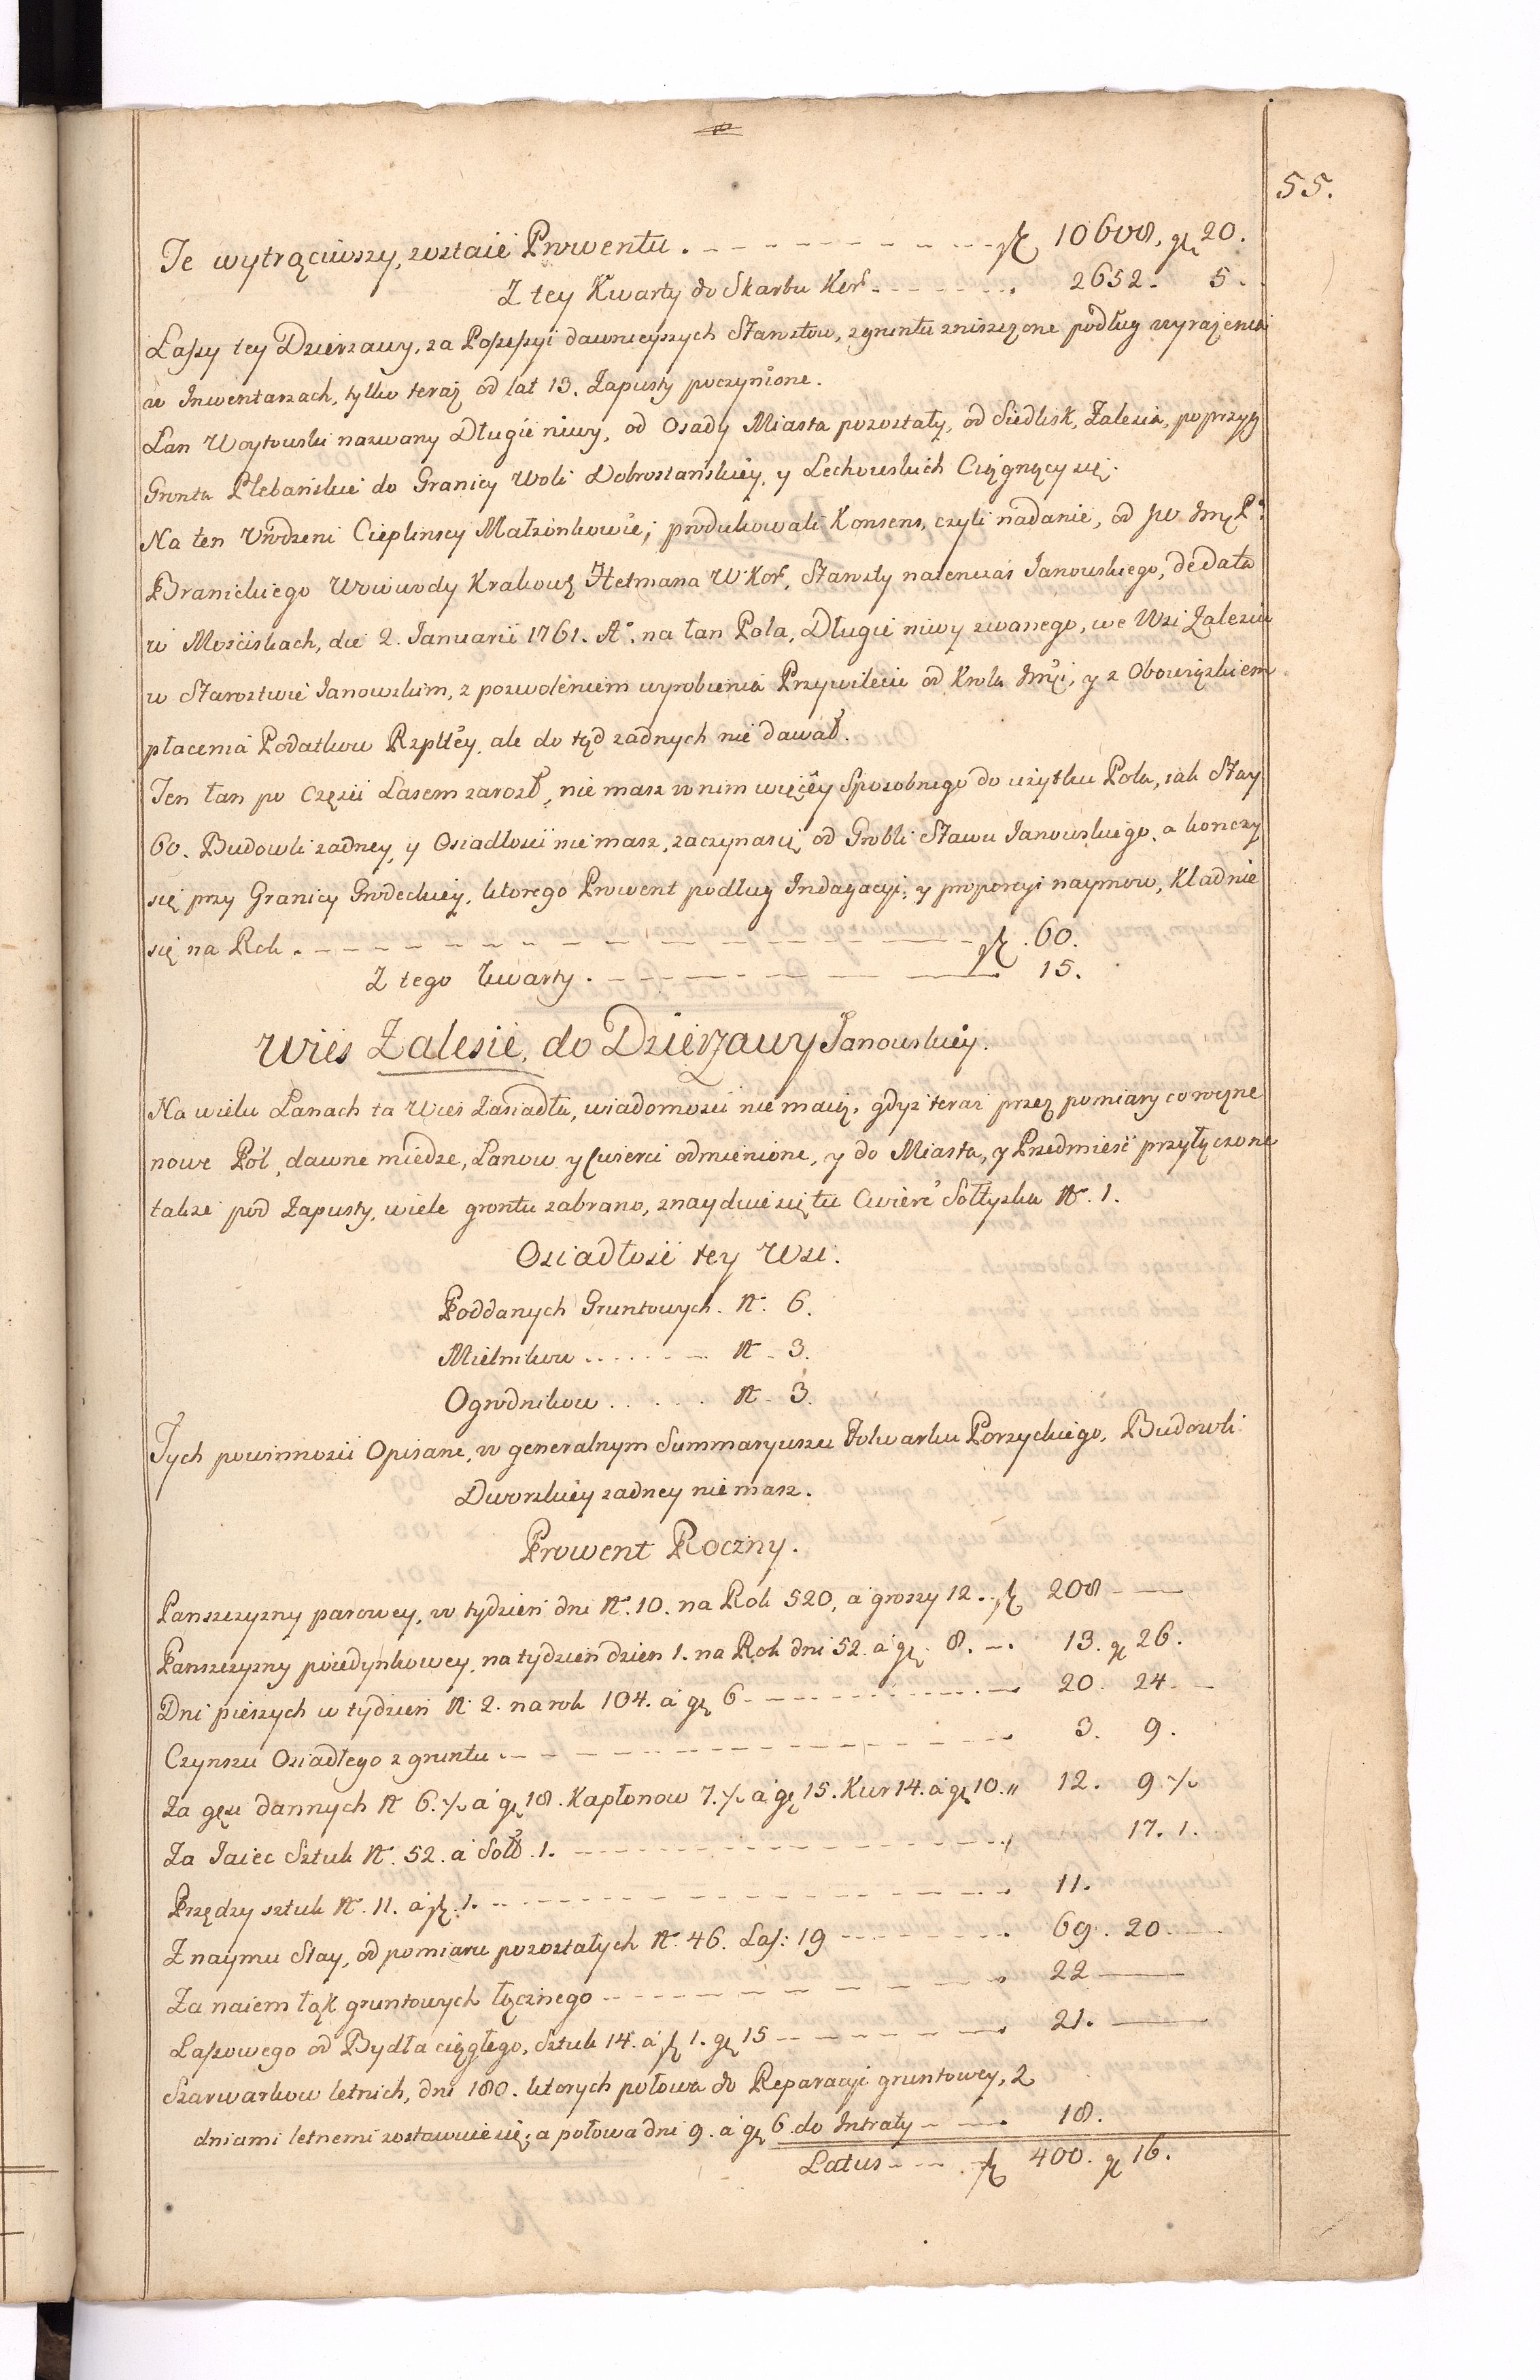 55.
Te wytrąciwszy, zostaie Prowentu . - - - - - - - - zł 10608. gr 20.
Z tey Kwarty do Skarbu Kor. - - - - - - . 2652. 5.
Lassy tey Dzierzawy, za Possessyi dawnieyszych Starostow, z gruntu zniszczone podług wyrazenia
w Inwentarzach, tylko teraz od lat 13. Zapusty poczynione.
Łan Woytowski nazwany Długie niwy, od Osady Miasta pozostały, od Siedlisk, Zalesia, poprzy
Grunta Plebańskie do Granicy Woli Dobrostańskiey, y Lechowskich Ciągnący się.
Na ten Urodzeni Cieplinscy Małzonkowie, produkowali Konsens, czyli nadanie, od JW Jmć Pa
Branickiego Woiewody Krakowsk Hetmana W Kor. Starosty natenczas Janowskiego, de data
w Mosciskach, die 2. Januarii 1761. Ao. na łan Pola, Długie niwy zwanego, we Wsi Zalesiu
w Starostwie Janowskim, z pozwoleniem wyrobienia Przywileiu od Krola Jmći, y z Obowiązkiem
płacenia Podatkow Rzpltey, ale do tąd zadnych nie dawał.
Ten łan po Części Lasem zarosł, nie masz w nim więcey Sposobnego do uzytku Pola, iak Stay
60. Budowli zadney, y Osiadłosci nie masz, zaczyna się od Grobli Stawu Janowskiego, a konczy
się przy Granicy Grodeckiey, ktorego Prowent podług Indagacyi, y proporcyi naymow, Kładnie
się na Rok . - - - - - - - - - - - - zł . 60.
Z tego Kwarty . - - - - - - 15.
Wies Zalesie, do Dzierzawy Janowskiey.
Na wielu Łanach ta Wies Zasiadła, wiadomosci nie maią, gdyz teraz przez pomiary cowęzne
nowe Pól, dawne miedze, Łanow y Cwierci odmienione, y do Miasta, y Przedmiesć przyłączone
takze pod Zapusty, wiele gruntu zabrano, znayduie się tu Cwierć Sołtyska N. 1.
Osiadłosć tey Wsi.
Poddanych Gruntowych. N. 6.
Mielnikow . . . . . - N. 3.
Ogrodnikow . . . . . . N. 3.
Tych powinnosci Opisane, w generalnym Summaryuszu Folwarku Porzyckiego, Budowli
Dworskiey zadney nie masz.
Prowent Roczny.
Panszczyzny parowey, w tydzien dni N. 10. na Rok 520, a groszy 12. . zł 208 —
Panszczyzny poiedynkowey, na tydzien dzien 1. na Rok dni 52. a gr. 8. - . 13. gr 26.
Dni pieszych w tydzien N. 2. na rok 104. a gr 6 - - - - - - - 20. 24. -
Czynszu Osiadłego z gruntu . - - - - - - - - - - - 3. 9.
Za gęsi dannych N. 6. ½ a gr 18. Kapłonow 7. ½ a gr 15. Kur 14. a gr 10. „ 12. 9 ½
Za Jaiec Sztuk N. 52. a Sold. 1. - - - - - - - - - - 17. 1.
Przędzy sztuk N. 11. a zł. 1. - - - - - - - - - - - . 11.
Z naymu Stay, od pomiaru pozostałych N. 46. Las: 19 - - - - - . 69. 20. -
Za naiem łąk gruntowych łącznego - - - - - - - - 22 —
Lasowego od Bydła ciągłego, Sztuk 14. a zł 1. gr 15 - - - - - - 21. —
Szarwarkow letnich, dni 180. ktorych połowa do Reparacyi gruntowey, 2
dniami letnemi zostawuie się, a połowa dni 9. a gr 6 do Intraty - - - 18.
Latus - - - . zł 400. gr 16.